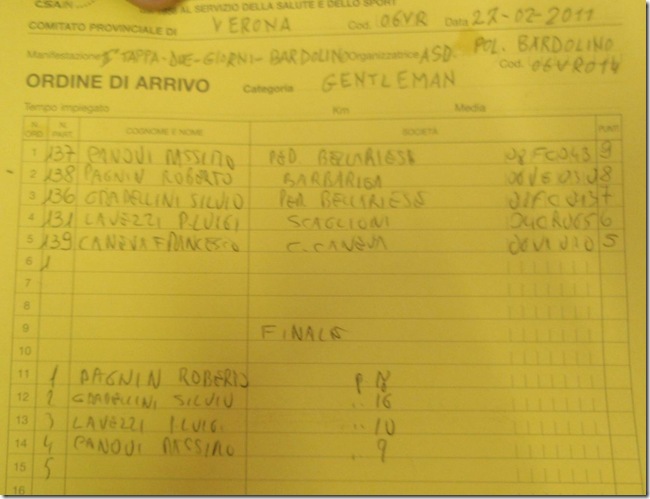 CSAIN AL SERVIZIO DELLA SALUTE E DELLO SPORT
COMITATO PROVINCIALE DI VERONA Cod. 06VR Data 27-02-2011
Manifestazione TAPPA-DUE-GIORNI-BARDOLINO Organizzatrice ASD. POL. BARDOLINO
Cod. 06VR014
ORDINE DI ARRIVO Categoria GENTLEMAN
Tempo impiegato Km Media
N. ORD. N. PART. COGNOME E NOME SOCIETÀ PUNTI
1 137 PANOVI MASSIMO PED BELLARIESE 9
2 138 PAGNIN ROBERTO BARBARIGA 8
3 136 SILVIO PED BELLARIESE 7
4 131 LAVEZZI P.LUIGI SCAGLIONI 6
5 139 CANEVA FRANCESCO C. CANEVA 5
6
7
8
9 FINALE
10
11 1 PAGNIN ROBERTO p.
12 2 SILVIO " 16
13 3 LAVEZZI P.LUIGI " 10
14 4 PANOVI MASSIMO " 9
15 5
16